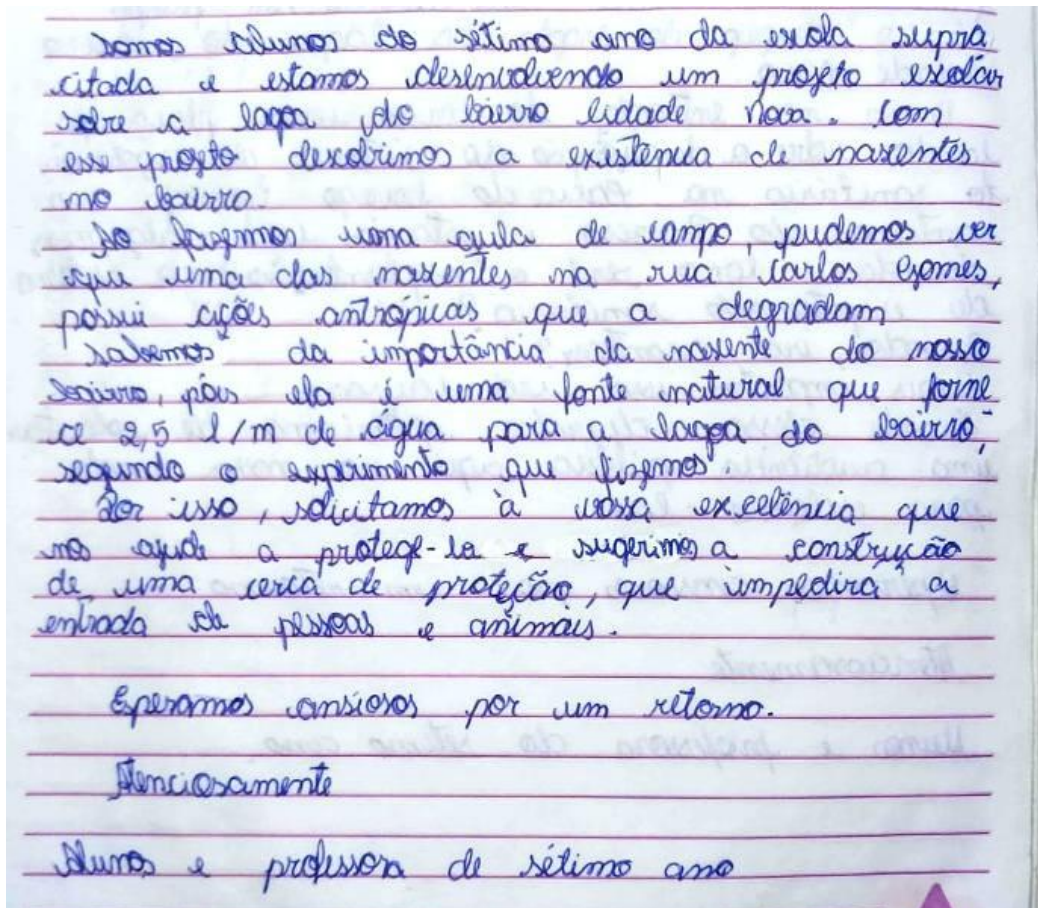 Somos alunos do sétimo ano da escola supra
citada e estamos desenvolvendo um projeto escolar
sobre a lagoa do bairro Cidade Nova. Com
esse projeto descobrimos a existência de nascentes
no bairro.
Ao fazermos uma aula de campo, pudemos ver
que uma das nascentes na rua Carlos Gomes,
possui ações antrópicas que a degradam
Sabemos da importância da nascente do nosso
bairro, pois ela é uma fonte natural que forne
ce 2,5 l/m de água para a lagoa do bairro,
segundo o experimento que fizemos
Por isso, solicitamos à vossa excelência que
nos ajude a protege-la e sugerimos a construção
de uma cerca de proteção, que impedirá a
entrada de pessoas e animais.
Esperamos ansiosos por um retorno.
Atenciosamente
Alunos e professora de sétimo ano